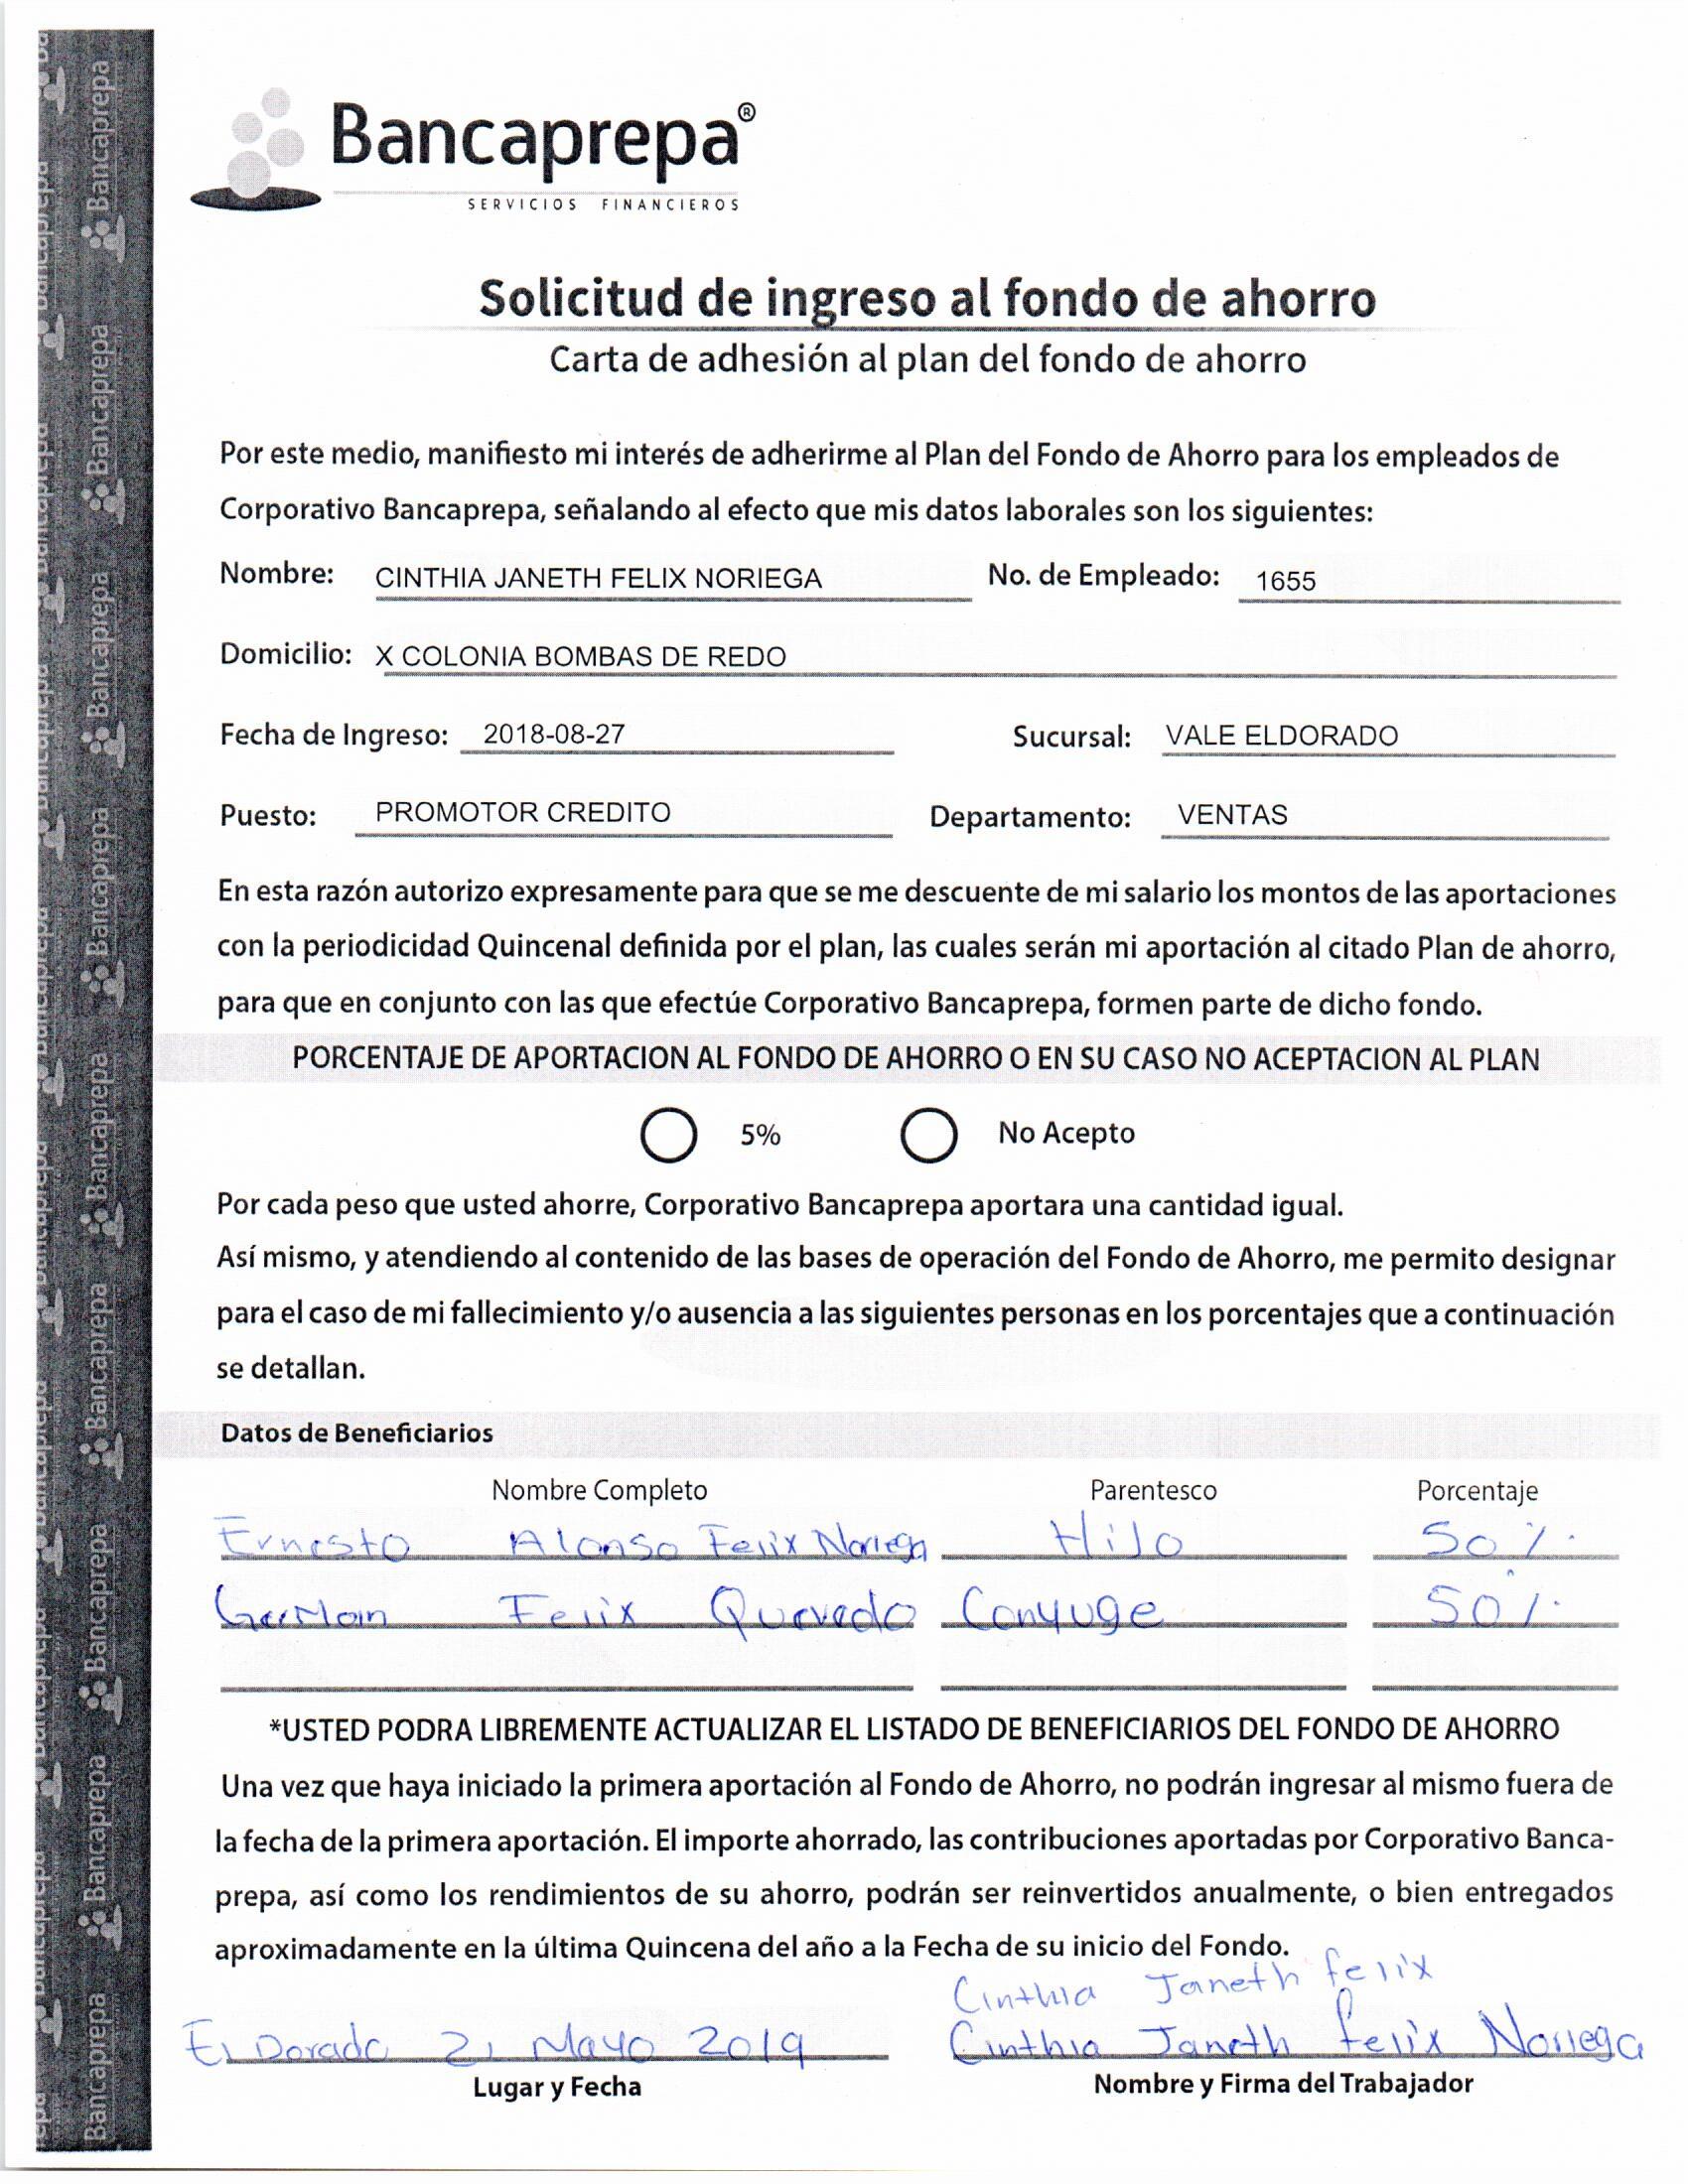 Bancaprepa®
SERVICIOS FINANCIEROS
Solicitud de ingreso al fondo de ahorro
Carta de adhesión al plan del fondo de ahorro
Por este medio, manifiesto mi interés de adherirme al Plan del Fondo de Ahorro para los empleados de
Corporativo Bancaprepa, señalando al efecto que mis datos laborales son los siguientes:
Nombre: CINTHIA JANETH FELIX NORIEGA No. de Empleado: 1655
Domicilio: X COLONIA BOMBAS DE REDO
Fecha de Ingreso: 2018-08-27 Sucursal: VALE ELDORADO
Puesto: PROMOTOR CREDITO Departamento: VENTAS
En esta razón autorizo expresamente para que se me descuente de mi salario los montos de las aportaciones
con la periodicidad Quincenal definida por el plan, las cuales serán mi aportación al citado Plan de ahorro,
para que en conjunto con las que efectúe Corporativo Bancaprepa, formen parte de dicho fondo.
PORCENTAJE DE APORTACION AL FONDO DE AHORRO O EN SU CASO NO ACEPTACION AL PLAN
5% No Acepto
Por cada peso que usted ahorre, Corporativo Bancaprepa aportara una cantidad igual.
Así mismo, y atendiendo al contenido de las bases de operación del Fondo de Ahorro, me permito designar
para el caso de mi fallecimiento y/o ausencia a las siguientes personas en los porcentajes que a continuación
se detallan.
Datos de Beneficiarios
Nombre Completo Parentesco Porcentaje
Ernesto Alonso Felix Noriega Hijo 50%
German Felix Quevedo Conyuge 50%
*USTED PODRA LIBREMENTE ACTUALIZAR EL LISTADO DE BENEFICIARIOS DEL FONDO DE AHORRO
Una vez que haya iniciado la primera aportación al Fondo de Ahorro, no podrán ingresar al mismo fuera de
la fecha de la primera aportación. El importe ahorrado, las contribuciones aportadas por Corporativo Banca-
prepa, así como los rendimientos de su ahorro, podrán ser reinvertidos anualmente, o bien entregados
aproximadamente en la última Quincena del año a la Fecha de su inicio del Fondo.
Cinthia Janeth felix
El Dorado 21 Mayo 2019 Cinthia Janeth felix Noriega
Lugar y Fecha Nombre y Firma del Trabajador